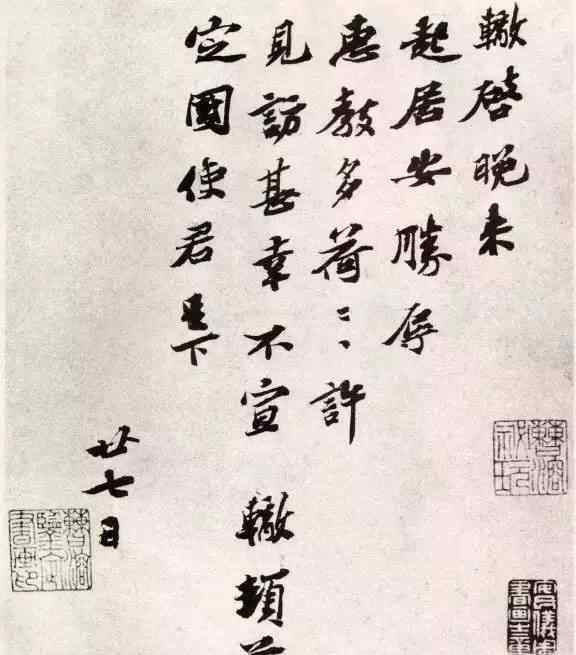 轍啓晚来
起居安勝辱
惠教多荷〻許
見訪甚幸不宣 轍頓首
定國使君足下
廿七日